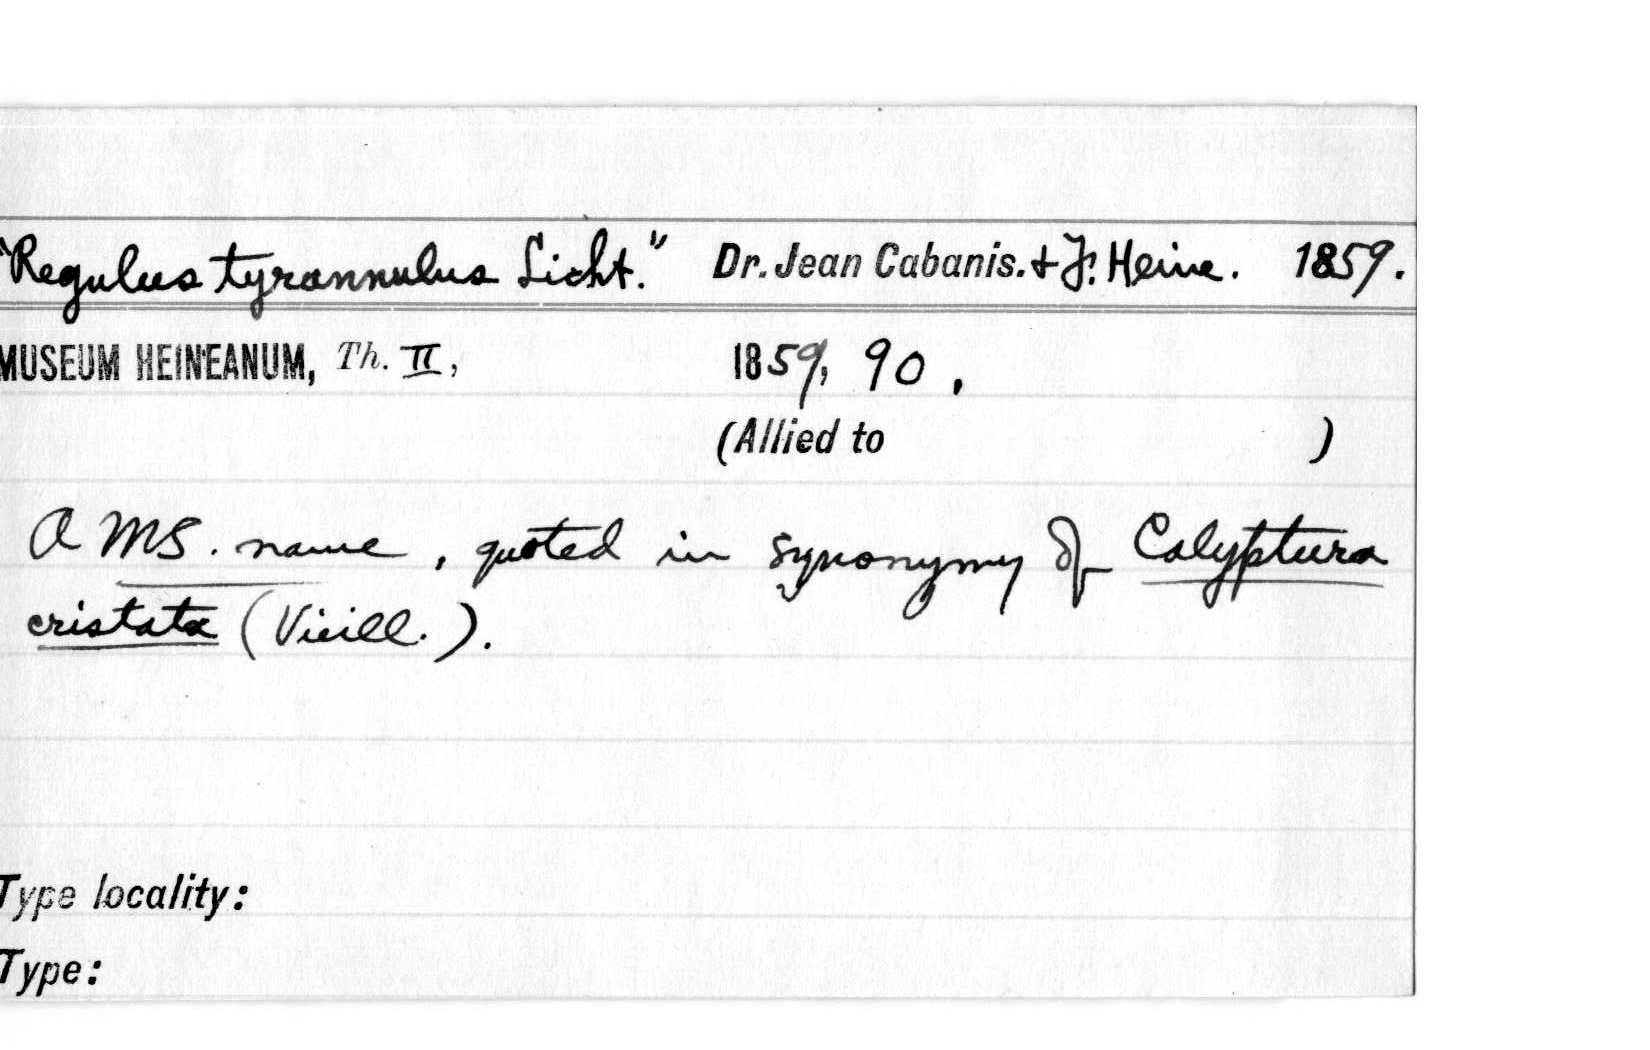 "Regulus tyrannulus Licht." Dr. Jean Cabanis. + F. Heine. 1859.
MUSEUM HEINEANUM, Th. II, 1859, 90.
(Allied to )
A MS. name, quoted in synonymy of Calyptura
cristata (Vieill.).
Type locality:
Type: